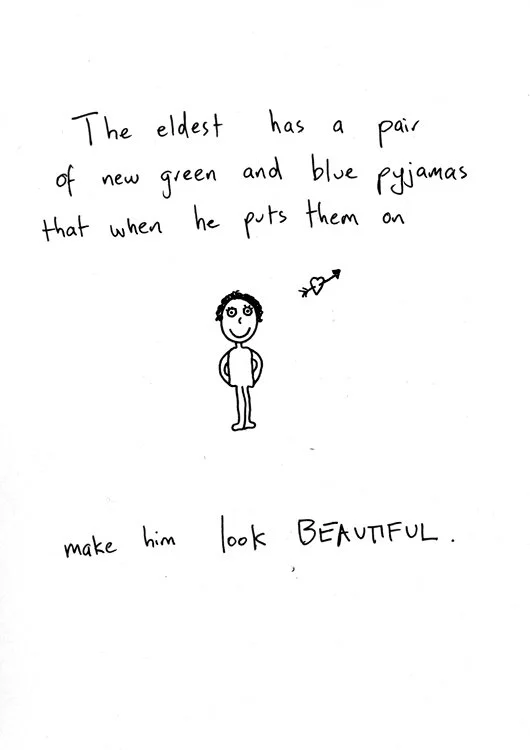 The eldest has a pair
of new green and blue pyjamas
that when he puts them on
make him look BEAUTIFUL.